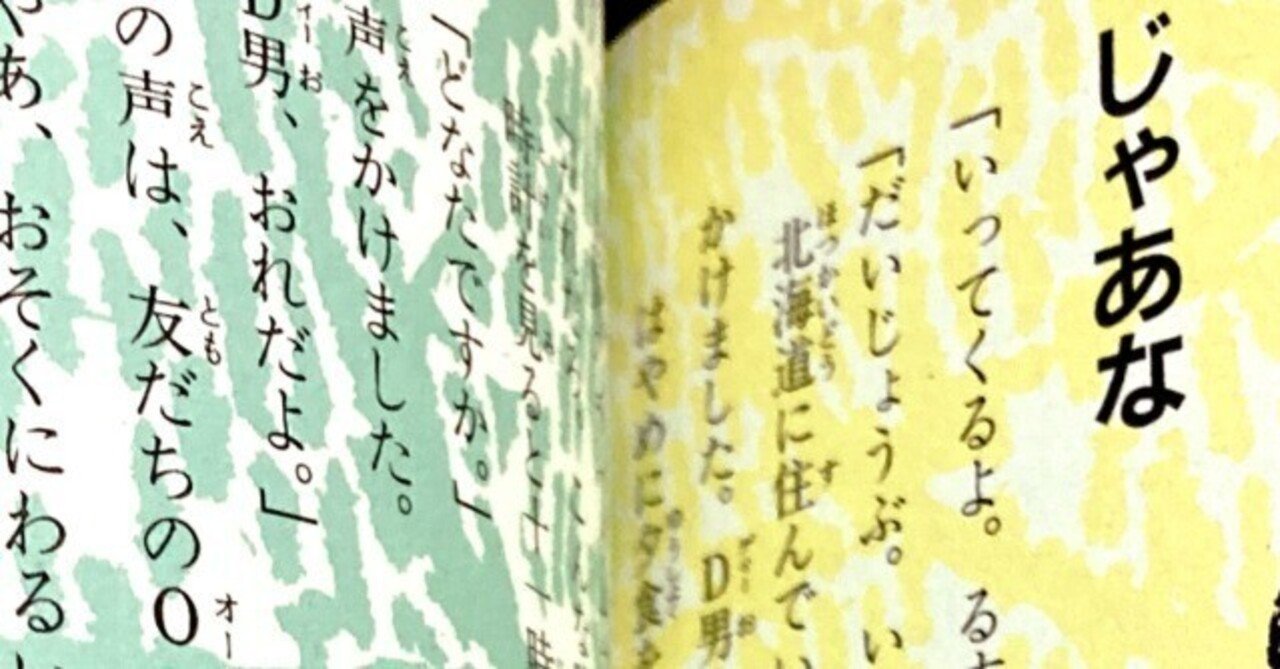 じゃあな
「いってくるよ。 るす
「だいじょうぶ。 い
北海道に住んでい
かけました。 D男
はやめに夕食を
時計を見ると十一時
「どなたですか。」
声をかけました。
D男、おれだよ。」
の声は、友だちのO
やあ、おそくにわる